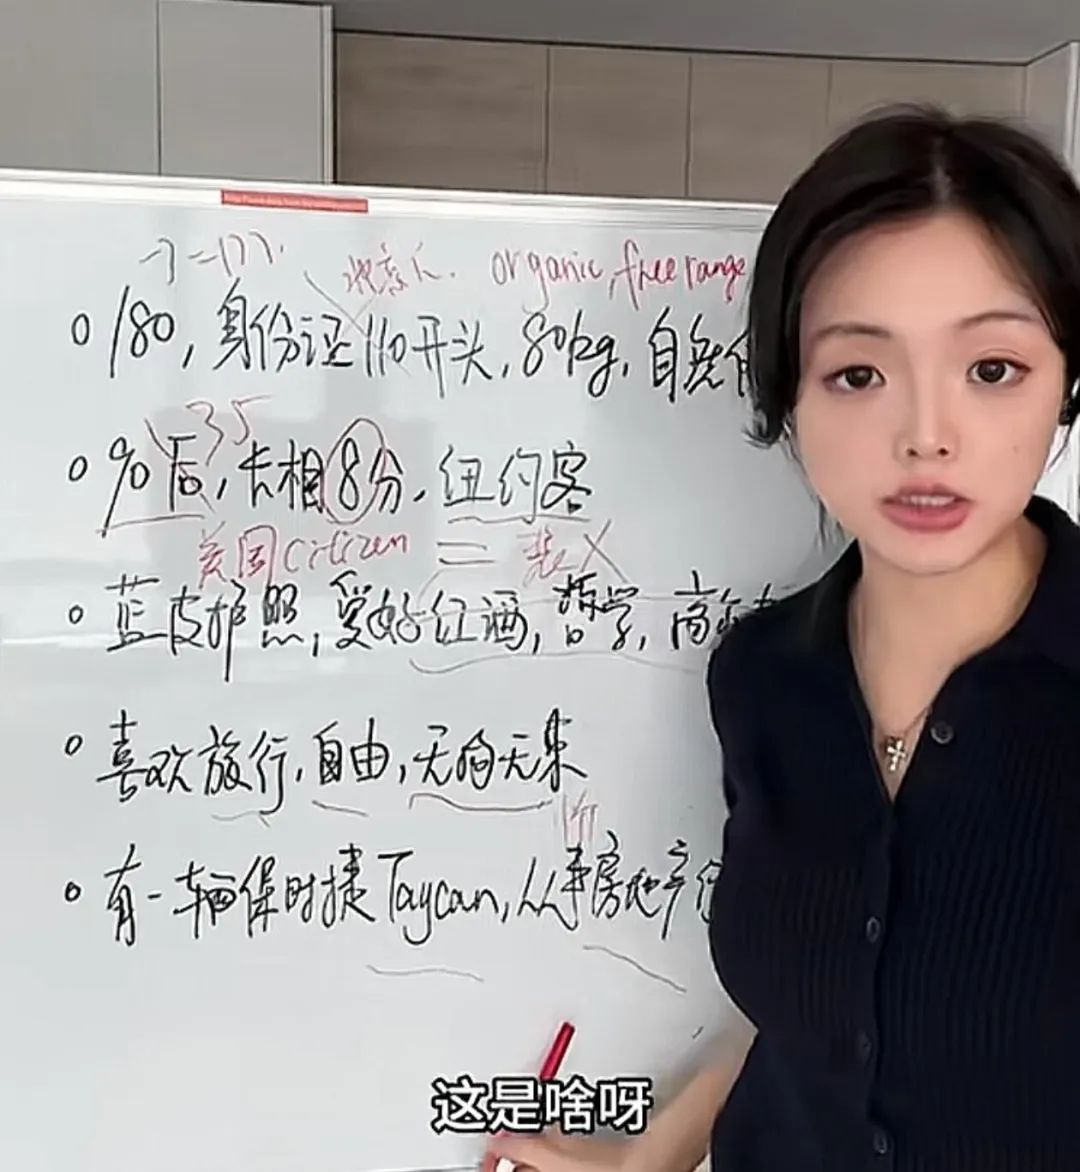 organic, free range
180, 身份证110开头, 80kg, 自
35
90后, 长相8分, 纽约客
美国citizen = 装X
蓝皮护照, 爱好红酒, 哲学, 高尔
喜欢旅行, 自由, 无拘无束
有一辆保时捷Taycan, 从事房地产
这是啥呀